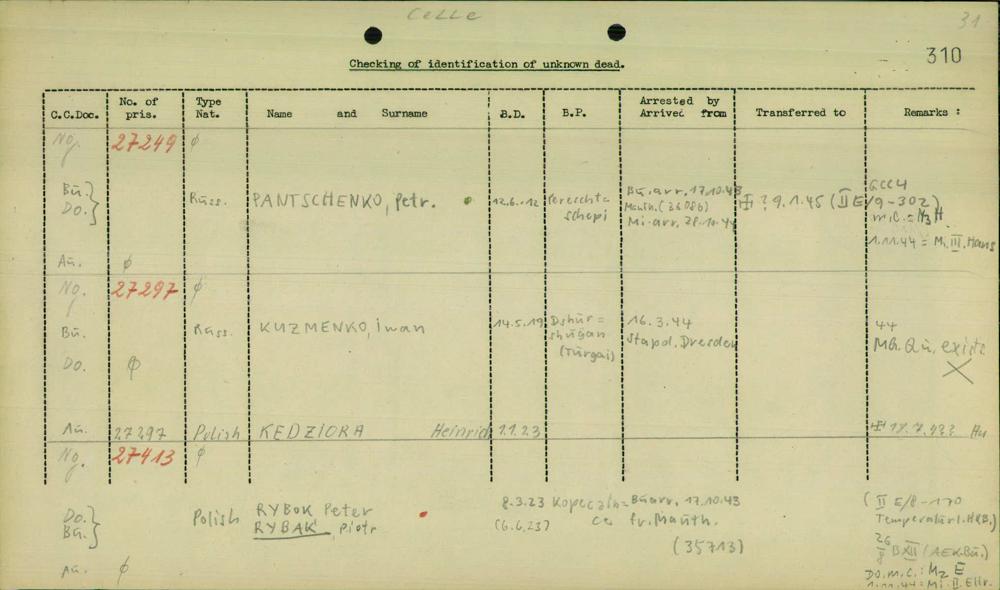 Celle
31
310
Checking of identification of unknown dead.
C.C.Doc. No. of pris. Type Nat. Name and Surname B.D. B.P. Arrested by Arrived from Transferred to Remarks :
No. 27249 ø
Bu. Do. } Russ. PANTSCHENKO, Petr. 12.6.12
Bu. arr. 17.10.43
Mauth. (26086)
Mi. arr. 28.10.44
? 9.1.45 (II E/9-302)
m.C. = N3H
1.11.44 = Mi. III. Hans
Au. ø
No. 27297 ø
Bu. Russ. KUZMENKO, Iwan 14.5.19 Dshur= shugan (Turgai) 16.3.44 Stapol. Dresden
44
Mb. Qu. exists
X
Do. ø
Au. 27297 Polish KEDZIORA Heinrich 1.1.23
No. 27413 ø
Do. Bu. } Polish RYBOK Peter 8.3.23 Bu arr. 17.10.43
RYBAK Piotr (6.6.23?) fr. Mauth.
(35713)
( II E/8-170
Temperaturl. HKB.)
26
8 B XII (AEK.Bu.)
Do. m.C.: M2 E
1.11.44 = Mi. II. Ellr.
Au. ø